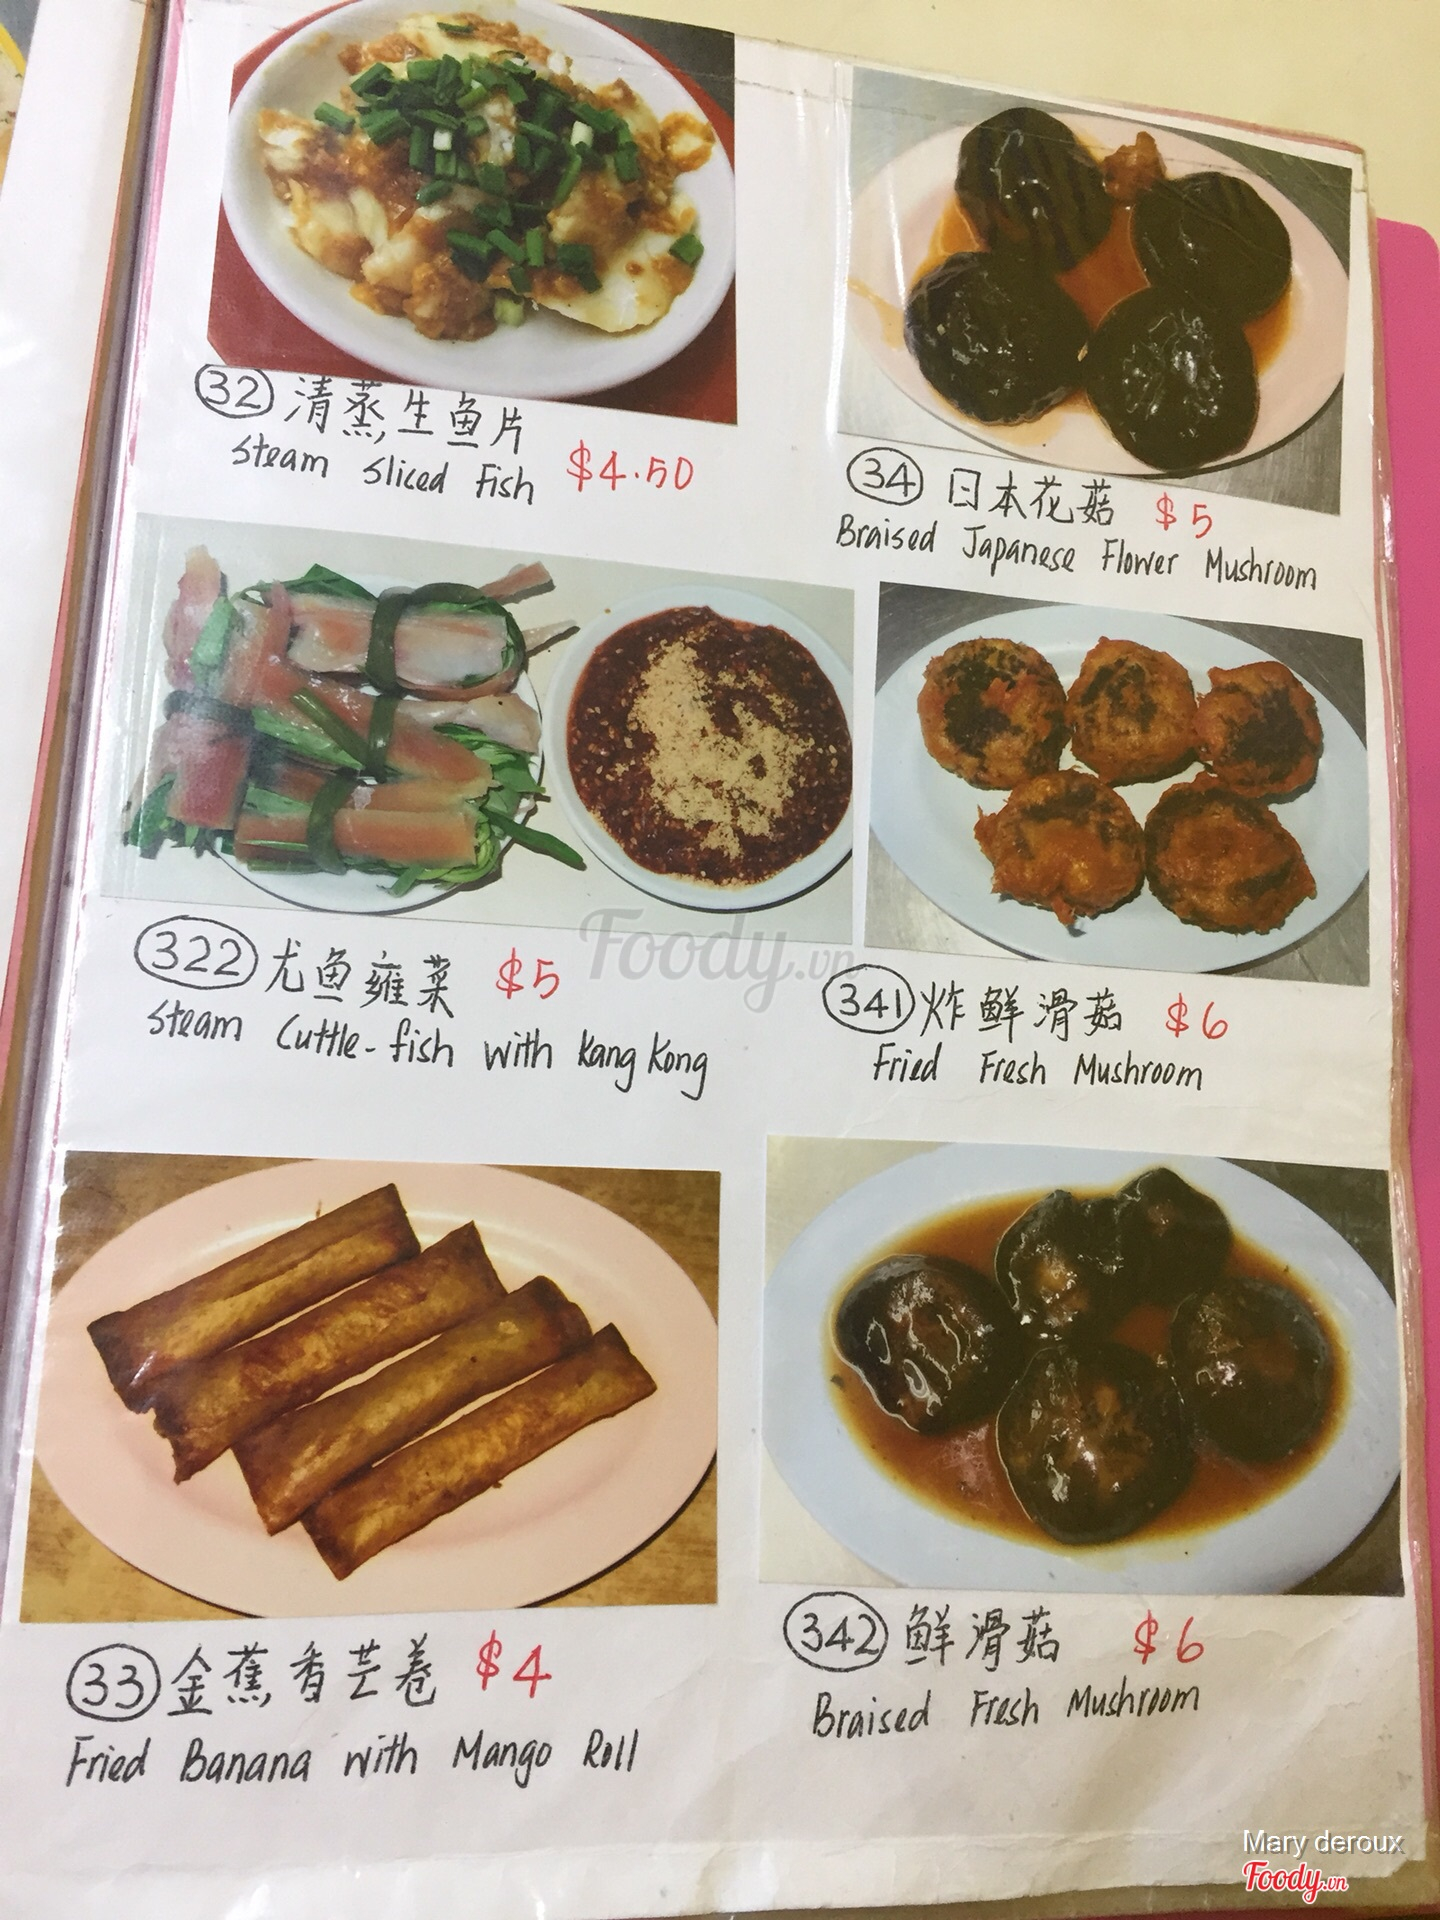 32 清蒸生鱼片
Steam Sliced Fish $4.50
34 日本花菇 $5
Braised Japanese Flower Mushroom
322 尤鱼雍菜 $5
Steam Cuttle-fish with Kang Kong
341 炸鲜滑菇 $6
Fried Fresh Mushroom
33 金蕉香芒卷 $4
Fried Banana with Mango Roll
342 鲜滑菇 $6
Braised Fresh Mushroom
Foody.vn
Mary deroux
Foody.vn